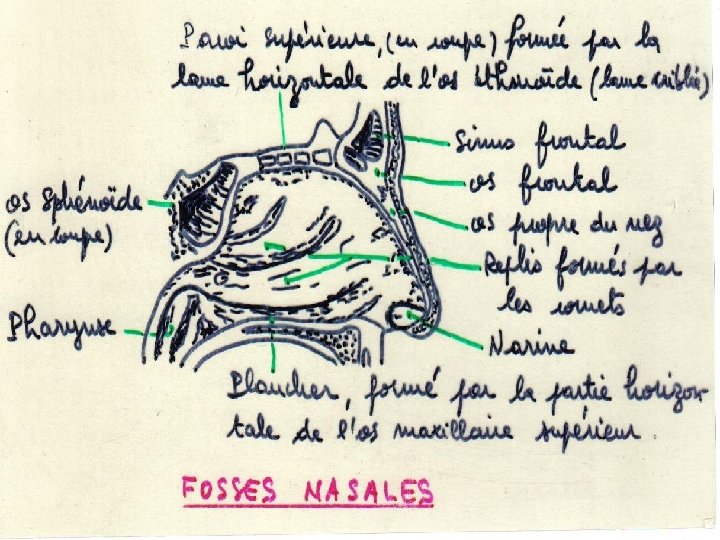 Paroi supérieure, (en coupe) formée par la
lame horizontale de l'os Ethmoïde (lame criblée)
Sinus frontal
os frontal
os Sphénoïde
(En coupe)
os propre du nez
Replis formés par
les cornets
Pharynx
Narine
Plancher, formé par la partie horizon-
tale de l'os maxillaire supérieur.
FOSSES NASALES